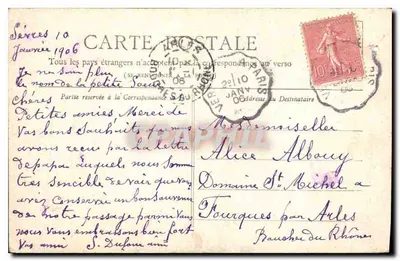 Sèvres 10
Janvier 1906
CARTE POSTALE
Tous les pays étrangers n'acceptent pas la correspondance au verso
Je ne sais plus
le nom de la petite Soeur
Partie réservée à la Correspondance
Adresse du Destinataire
Chères
Petites amies Merci de
Vos bons Souhaits que nous
avons recue par la lettre
de papa auquels nous sommes
très sensible de voir que vous
avez conservé un bon souvenir
de notre passage parmi vous
nous vous embrassons bien fort
Vos amis S. Dufour
Mesdemoiselles
Alice Albouy
Domaine St Michel
Fourques par Arles
Bouches du Rhône
PARIS
10
JANV
06